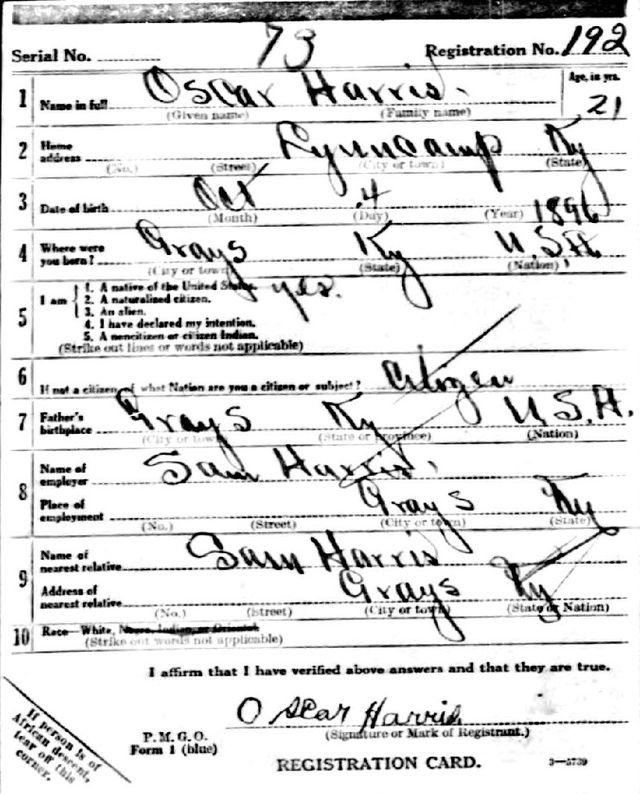 Serial No. 73 Registration No. 192
1 Name in full Oscar Harris. Age, in yrs.
(Given name) (Family name) 21
2 Home address Lynncamp Ky
(No.) (Street) (City or town) (State)
3 Date of birth Oct 4 1896
(Month) (Day) (Year)
4 Where were you born? Grays Ky U.S.A.
(City or town) (State) (Nation)
5 I am 1. A native of the United States. yes.
2. A naturalized citizen.
3. An alien.
4. I have declared my intention.
5. A noncitizen or citizen Indian.
(Strike out lines or words not applicable)
6 If not a citizen, of what Nation are you a citizen or subject? Citizen
7 Father's birthplace Grays Ky U.S.A.
(City or town) (State or province) (Nation)
8 Name of employer Sam Harris.
Place of employment Grays Ky
(No.) (Street) (City or town) (State)
9 Name of nearest relative Sam Harris
Address of nearest relative Grays Ky
(No.) (Street) (City or town) (State or Nation)
10 Race—White, Negro, Indian, or Oriental
(Strike out words not applicable)
I affirm that I have verified above answers and that they are true.
Oscar Harris
P.M.G.O. (Signature or Mark of Registrant.)
Form 1 (blue)
REGISTRATION CARD. 3—5739
If person is of
African descent,
tear off this
corner.